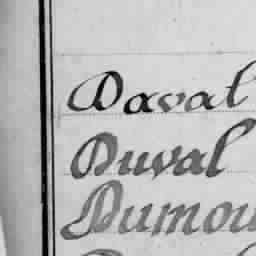 Daval
Duval
Dumou